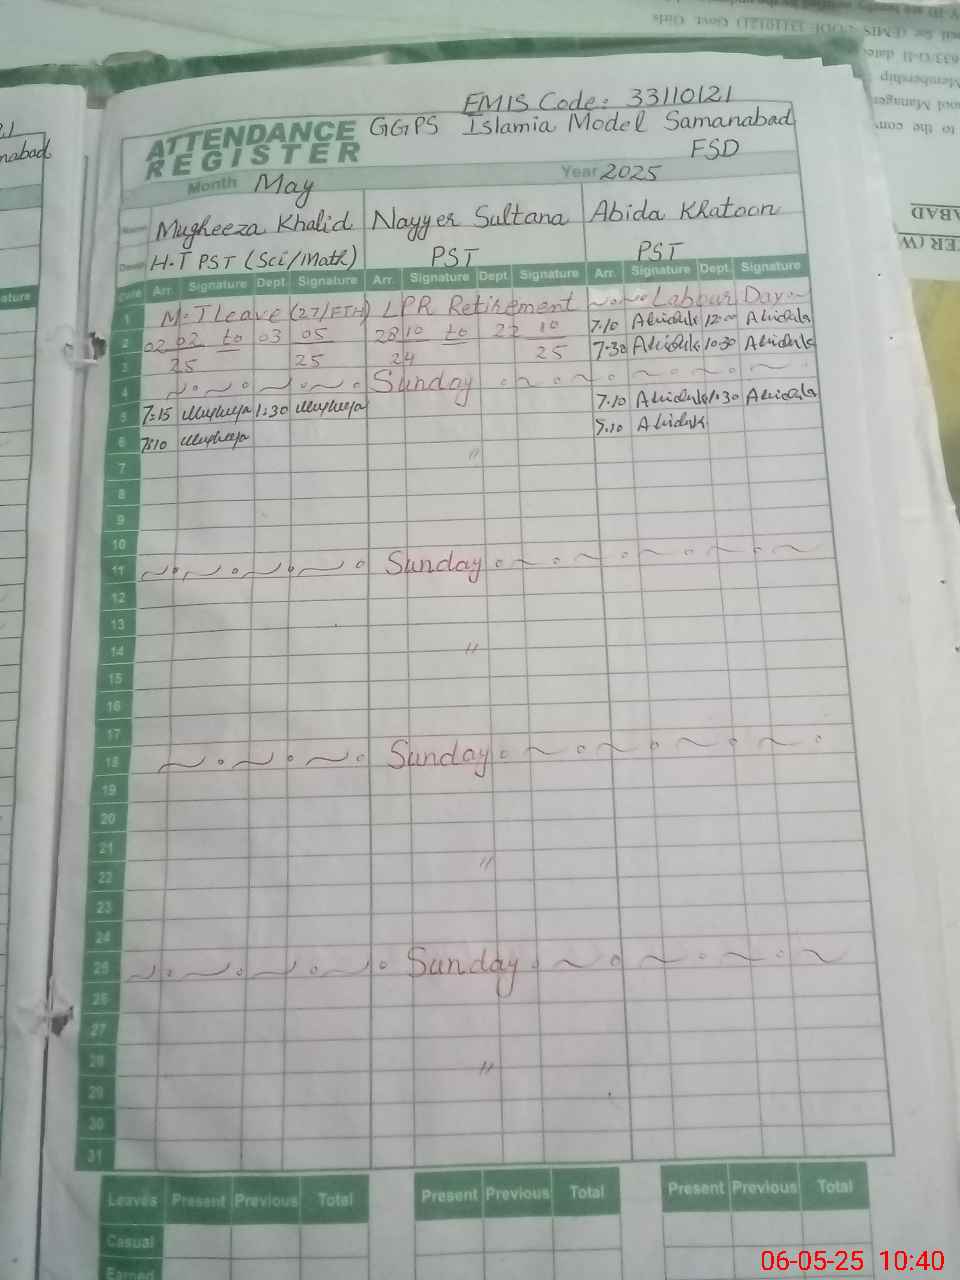 EMIS Code: 33110121
ATTENDANCE REGISTER
GGPS Islamia Model Samanabad
FSD
Month May Year 2025
Mugheeza Khalid Nayyer Sultana Abida Khatoon
H.T PST (Sci/Math) PST PST
Date Arr. Signature Dept. Signature Arr. Signature Dept. Signature Arr. Signature Dept. Signature
1 M.T Leave (27/FTH) LPR Retirement Labbur Day
2 02 02 to 03 05 28 10 to 22 10 7.10 12:00
3 25 25 24 25 7.30 10:30
4 Sunday
5 7:15 1:30 7.10 1:30
6
7 "
8
9
10
11 Sunday
12
13
14 "
15
16
17
18 Sunday
19
20
21 "
22
23
24
25 Sunday
26
27
28 "
29
30
31
Leaves Present Previous Total Present Previous Total Present Previous Total
Casual
Earned
06-05-25 10:40